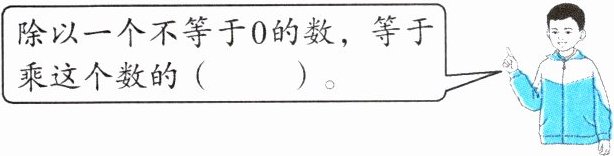 除以一个不等于0的数，等于
乘这个数的（        ）。